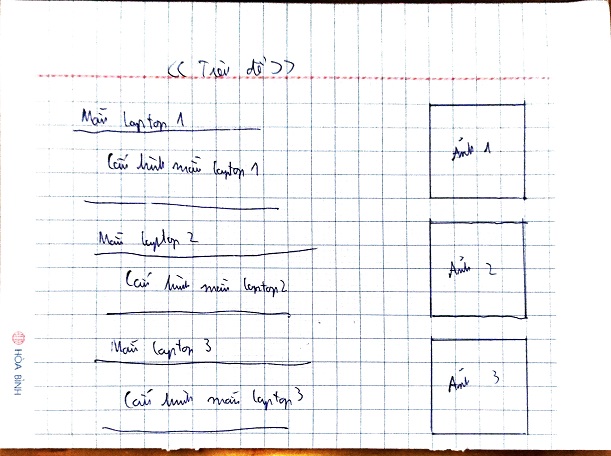 << Tiêu đề >>
Mẫu laptop 1
Cấu hình mẫu laptop 1
Ảnh 1
Mẫu laptop 2
Cấu hình mẫu laptop 2
Ảnh 2
Mẫu laptop 3
Cấu hình mẫu laptop 3
Ảnh 3
HÒA BÌNH